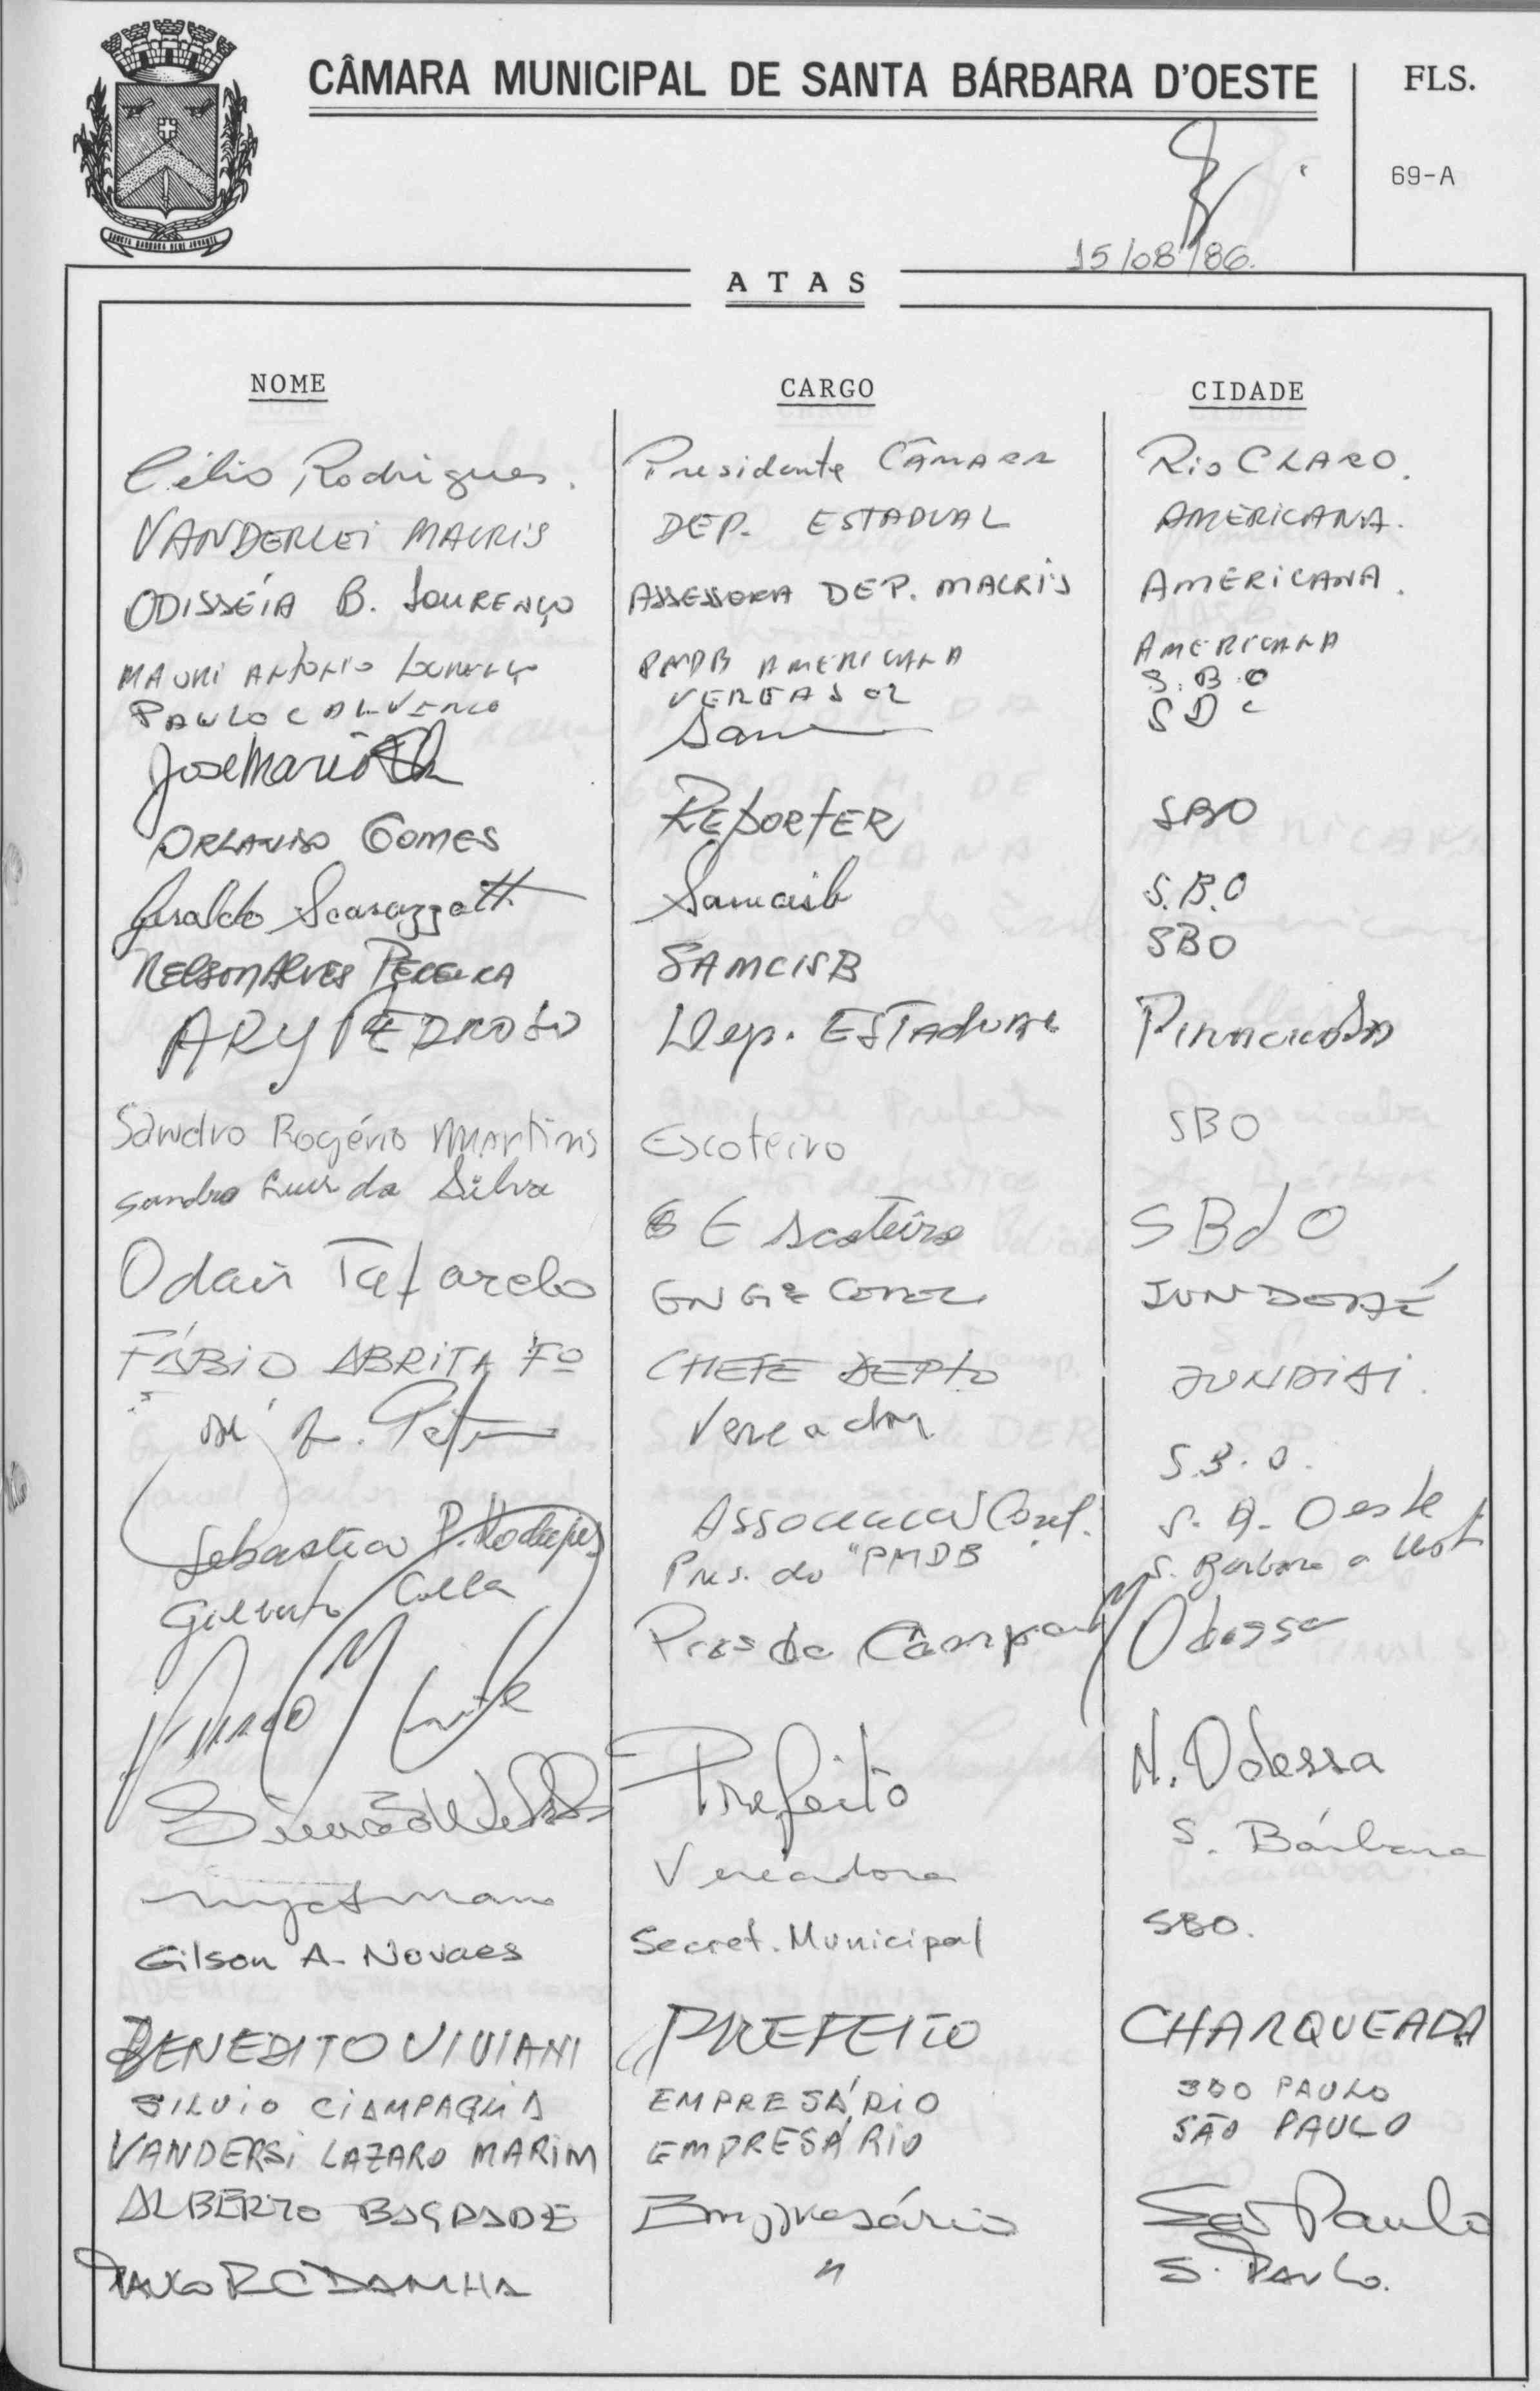 CÂMARA MUNICIPAL DE SANTA BÁRBARA D'OESTE
FLS.
69-A
15/08/86.
ATAS
NOME CARGO CIDADE
Célio Rodrigues. Presidente CÂMARA Rio CLARO.
VANDERLEI MACRIS DEP. ESTADUAL AMERICANA.
ODISSÉIA B. LOURENÇO ASSESSORA DEP. MACRIS AMERICANA.
MAURI ANTONIO PMDB AMERICANA AMERICANA
PAULO VEREADOR S.B.O
José Maria
ORLANDO GOMES REPORTER SBO
Geraldo Scarazzatti Samcisb S.B.O
NELSON ALVES PEREIRA SAMCISB SBO
ARY PEDROSO Dep. ESTADUAL PIRACICABA
Sandro Rogério Martins Escoteiro SBO
Sandro Luis da Silva Escoteiro SBdO
Odair Tafarelo ENGº
FÁBIO ABRITA Fº CHEFE DEPTO JUNDIAI.
Vereador S.B.O.
Sebastião P. Rodrigues S. B. Oeste
Gilberto Pres. do "PMDB S. Barbara
Pres da Câmara Odessa
Prefeito N. Odessa
Vereadora S. Bárbara
Gilson A. Novaes Secret. Municipal SBO.
BENEDITO VIVIANI PREFEITO CHARQUEADA
SILVIO CIAMPAGLIA EMPRESÁRIO SÃO PAULO
VANDERSI LAZARO MARIM EMPRESÁRIO SÃO PAULO
ALBERTO BAGDADE Empresário São Paulo
DAMHA " S. PAULO.